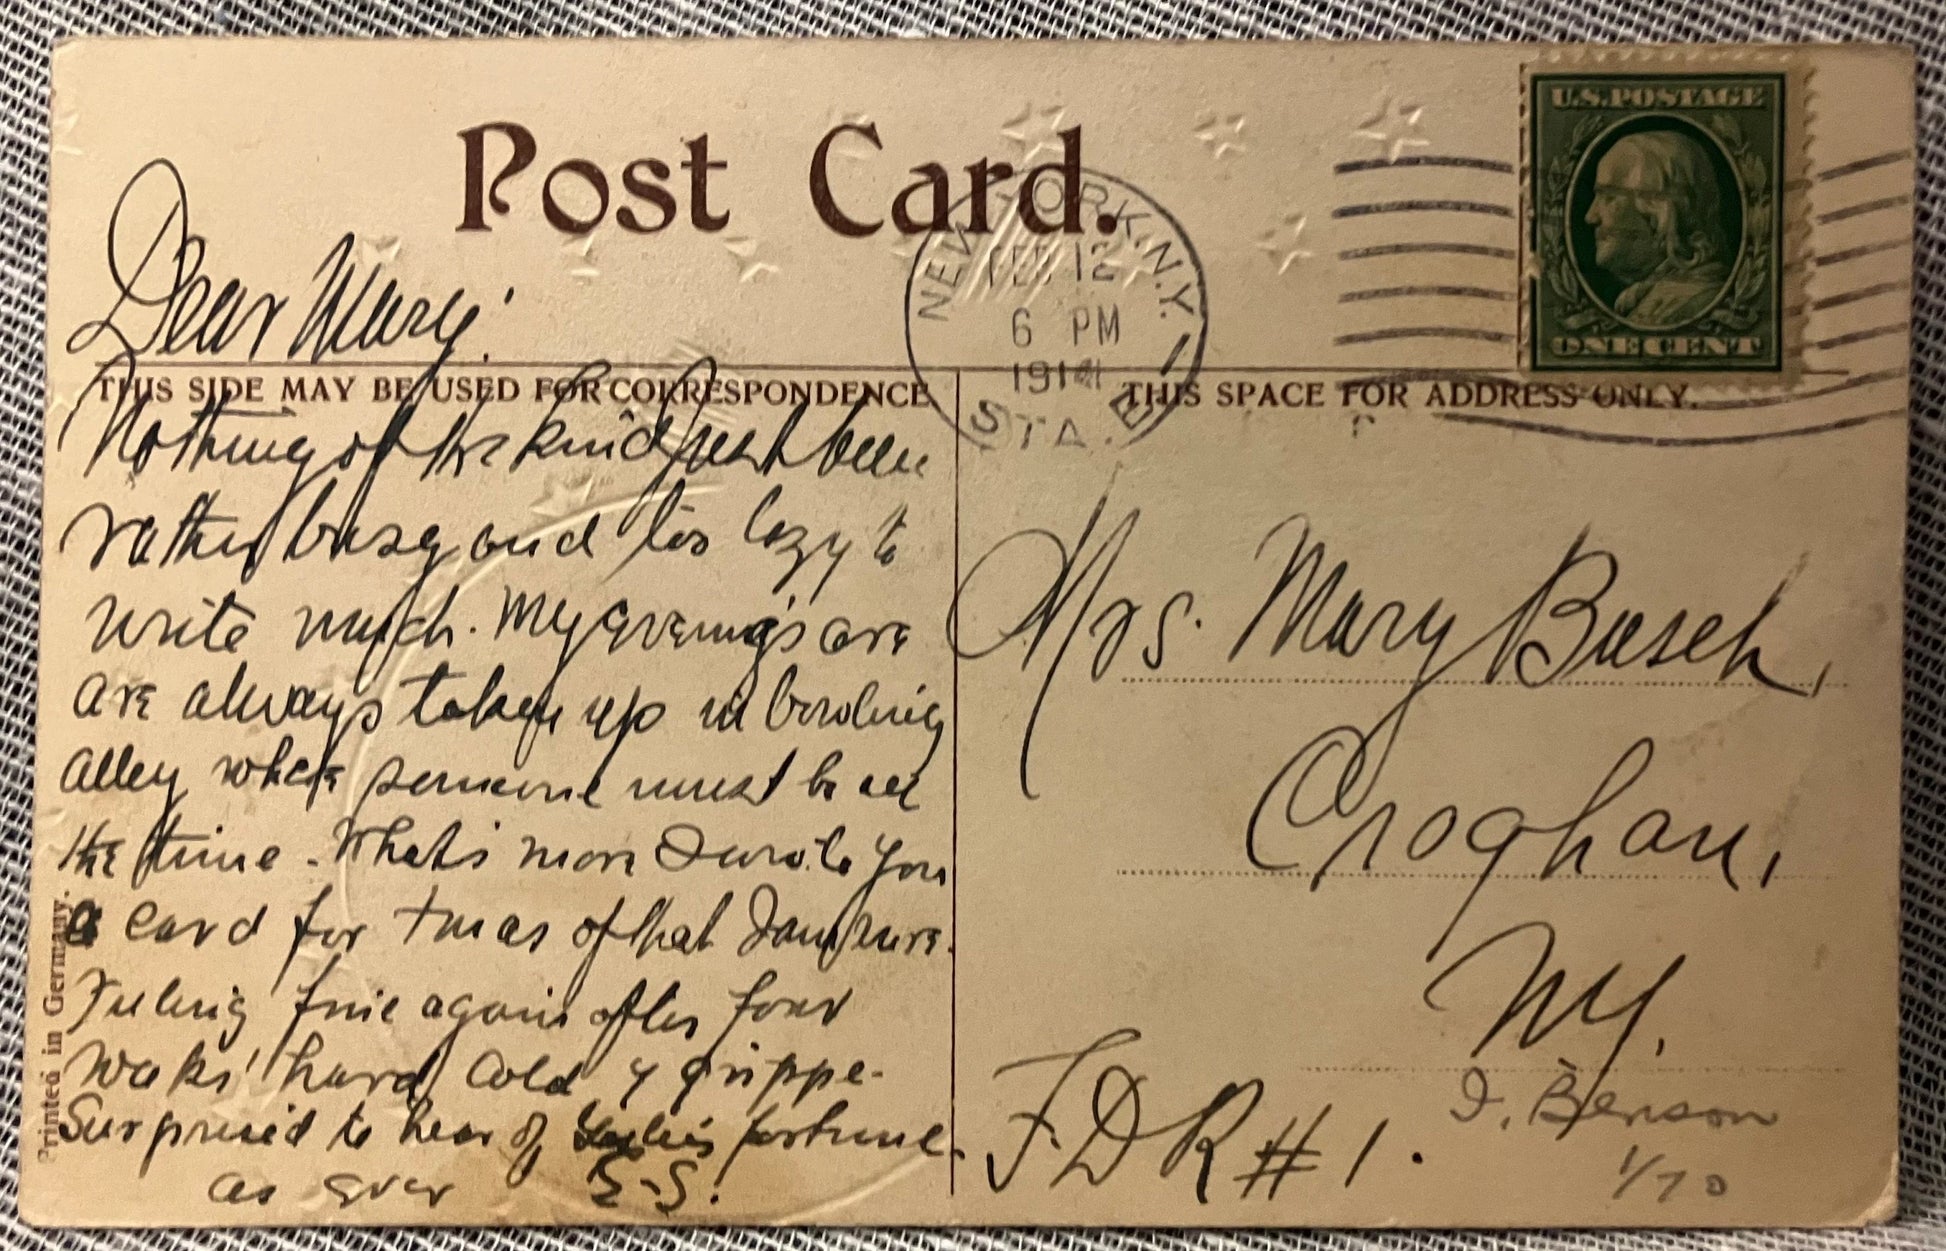 U.S.POSTAGE
ONE CENT
Post Card.
NEW YORK, N.Y.
FEB 12
6 PM
1914
STA. E
Dear Mary.
THIS SIDE MAY BE USED FOR CORRESPONDENCE
THIS SPACE FOR ADDRESS ONLY.
Nothing of the kind Just been
rather busy and too lazy to
write much. My evenings are
are always taken up in bowling
alley where someone must be all
the time. What's more I wrote you
a card for Xmas of that I am sure.
Feeling fine again after four
weeks' hard cold & grippe.
Surprised to hear of fortune.
as ever E-S.
Mrs. Mary Busch,
Croghan,
NY.
F.D R # 1.
I. Benson
1/70
Printed in Germany.